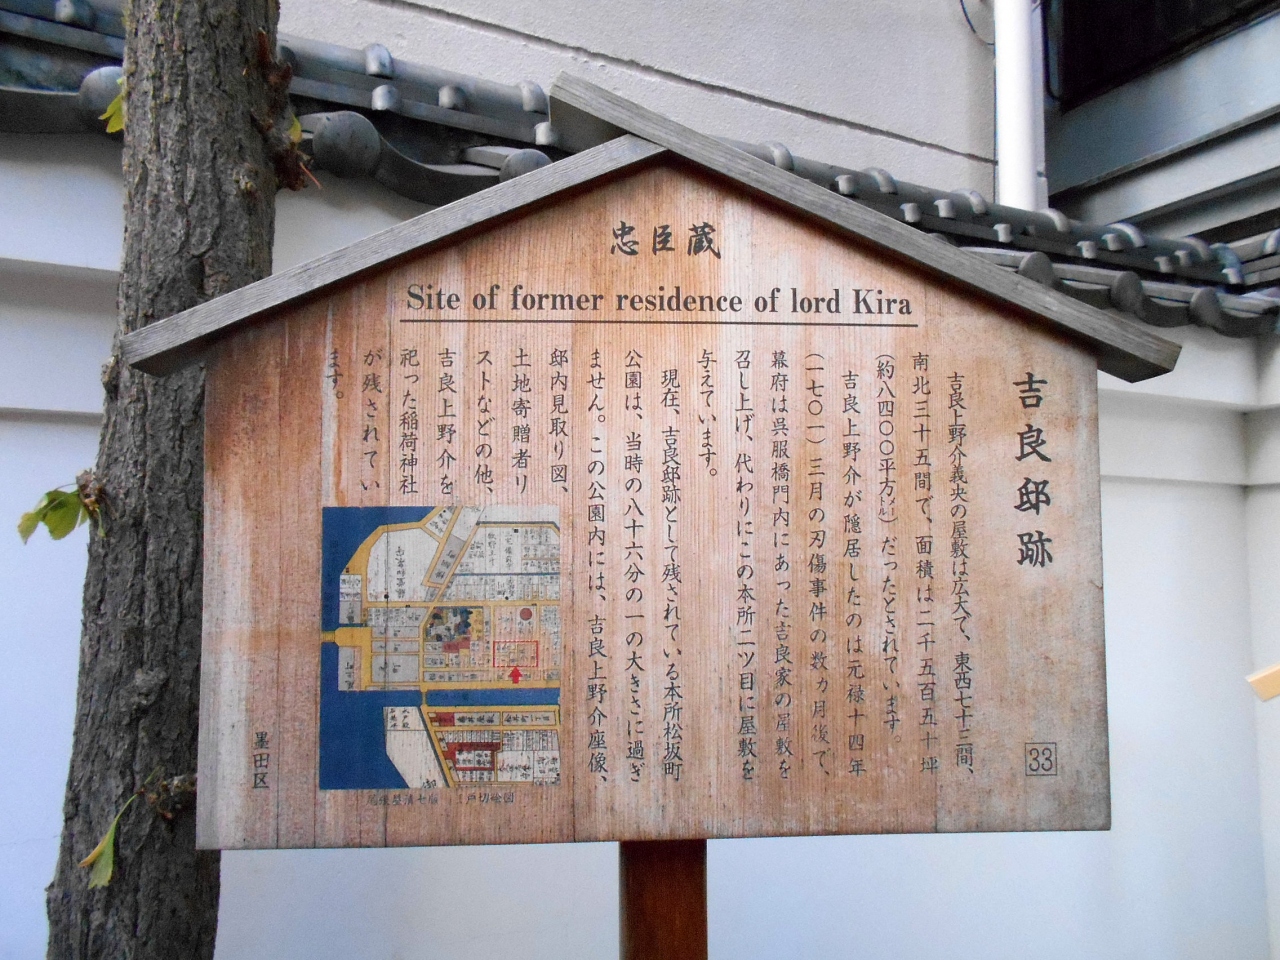 忠臣蔵
Site of former residence of lord Kira
吉良邸跡
33
吉良上野介義央の屋敷は広大で、東西七十三間、
南北三十五間で、面積は二千五百五十坪
(約八四〇〇平方メートル)だったとされています。
吉良上野介が隠居したのは元禄十四年
(一七〇一)三月の刃傷事件の数カ月後で、
幕府は呉服橋門内にあった吉良家の屋敷を
召し上げ、代わりにこの本所二ツ目に屋敷を
与えています。
現在、吉良邸跡として残されている本所松坂町
公園は、当時の八十六分の一の大きさに過ぎ
ません。この公園内には、吉良上野介座像、
邸内見取り図、
土地寄贈者リ
ストなどの他、
吉良上野介を
祀った稲荷神社
が残されてい
ます。
墨田区